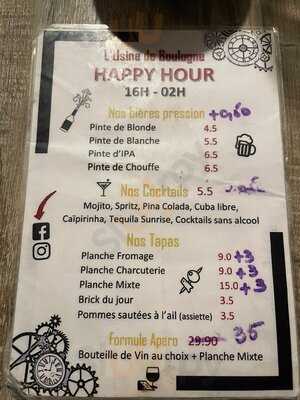 L'Usine de Boulogne
HAPPY HOUR
16H - 02H
Nos bières pression +0,50
Pinte de Blonde 4.5
Pinte de Blanche 5.5
Pinte d'IPA 6.5
Pinte de Chouffe 6.5
Nos Cocktails 5.5
Mojito, Spritz, Pina Colada, Cuba libre,
Caïpirinha, Tequila Sunrise, Cocktails sans alcool
Nos Tapas
Planche Fromage 9.0 +3
Planche Charcuterie 9.0 +3
Planche Mixte 15.0 +3
Brick du jour 3.5
Pommes sautées à l'ail (assiette) 3.5
Formule Apéro 29.90 35
Bouteille de Vin au choix + Planche Mixte